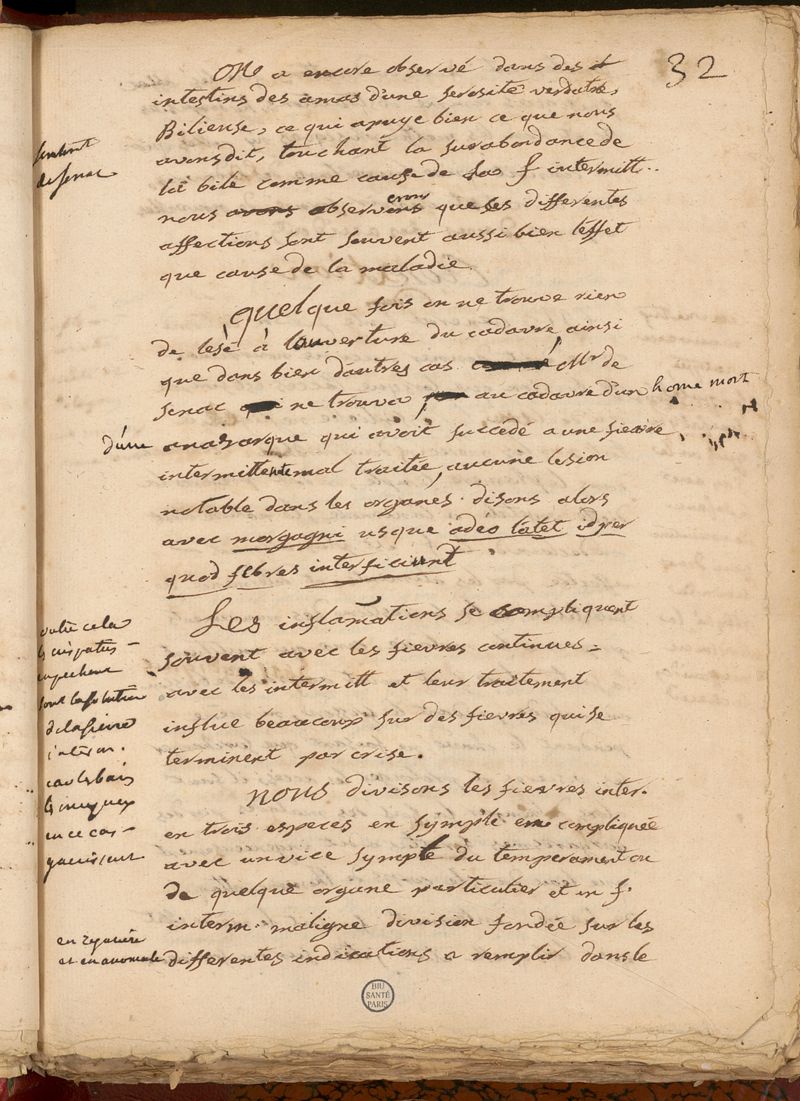 32
On a encore observé dans des
intestins des amas d'une serosité verdatre,
Bilieuse, ce qui apuye bien ce que nous
avons dit, touchant la surabondance de
la bile comme cause de la f intermitt.
nous avons observons que ses differentes
affections sont souvent aussi bien l'effet
que cause de la maladie
sentiment
de senac
quelque fois on ne trouve rien
de lesé à l'ouverture du cadavre ainsi
que dans bien d'autres cas Mr de
senac ne trouva au cadavre d'un home mort
d'une anazarque qui avoit succedé a une fievre,
intermittente mal traitée, aucune lesion
notable dans les organes. disons alors
avec morgagni usque adeo latet id per
quod febres interficiunt
Les inflamations se compliquent
souvent avec les fievres continues
avec les intermitt et leur traitement
influe beaucoup sur des fievres qui se
terminent par crise.
outre cela
empechent
la solution
de la fievre
interm.
car les bains
en ce cas
guerissent
nous divisons les fievres inter.
en trois especes en symple en compliquée
avec un vice symple du temperament ou
de quelque organe particulier et en f.
interm. maligne division fondée sur les
differentes indications a remplir dans le
en reguliere
et en anomale
BIU
SANTÉ
PARIS